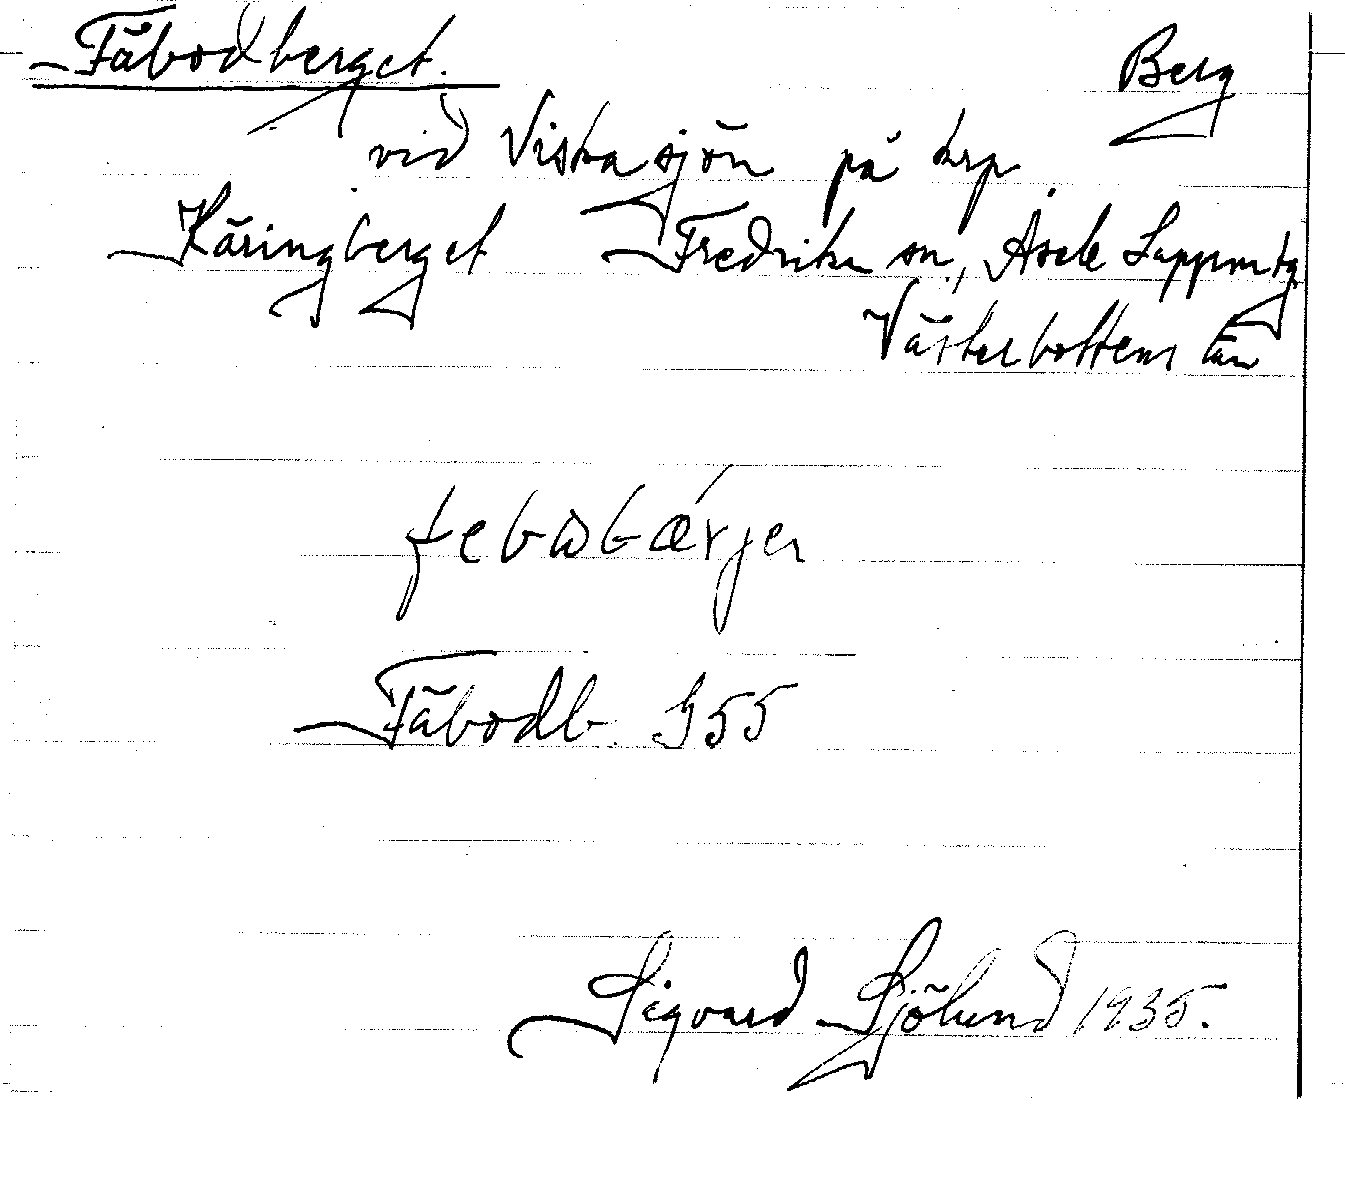 Fäbodberget. Berg
vid Vistasjön på krp
Käringberget Fredrika sn., Åsele Lappm tg
Västerbottens län
febωbærjen
Fäbodb. 955
Sigvard Sjölund 1935.